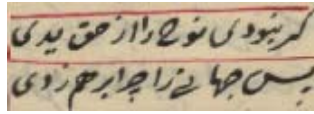 گر نبودی نوح را از حق یدی
پس جهانی را چرا برهم زدی